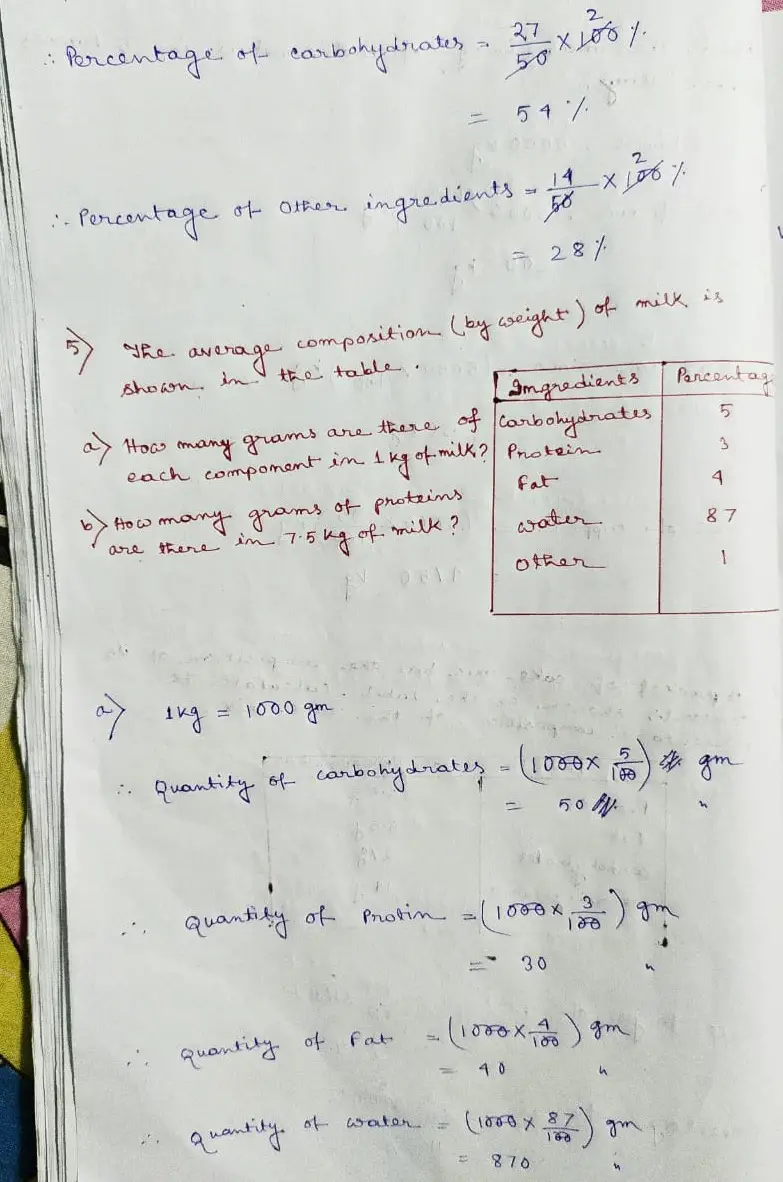 ∴ Percentage of carbohydrates = 27/50 × 100 2 %
= 54 %
∴ Percentage of other ingredients = 14/50 × 100 2 %
= 28 %
5) The average composition (by weight) of milk is
shown in the table.
a) How many grams are there of
each component in 1 kg of milk?
b) How many grams of proteins
are there in 7.5 kg of milk?
Imgredients Percentag
Carbohydrates 5
Protein 3
Fat 4
water 87
other 1
a) 1kg = 1000 gm
∴ Quantity of carbohydrates = (1000 × 5/100) gm
= 50 "
∴ Quantity of Protin = (1000 × 3/100) gm
= 30 "
∴ Quantity of Fat = (1000 × 4/100) gm
= 40 "
∴ Quantity of water = (1000 × 87/100) gm
= 870 "